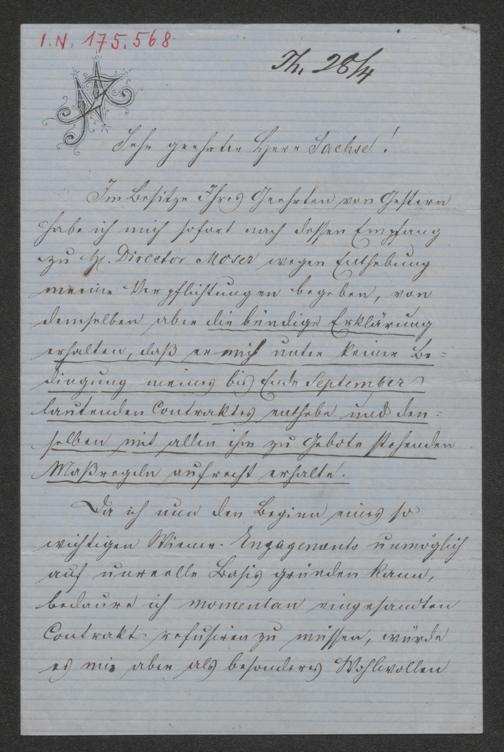 I.N. 175.568
Th. 28/4
Sehr geehrter Herr Sachse!
Im Besitze Ihres Geehrten von Gestern
habe ich mich sofort nach dessen Empfang
zu H. Director Moser wegen Enthebung
meiner Verpflichtungen begeben, von
demselben aber die bündige Erklärung
erhalten, daß er mich unter keiner Be=
dingung meines bis Ende September
lautenden Contraktes enthebe und den=
selben mit allen ihm zu Gebote stehenden
Maßregeln aufrecht erhalte.
Da ich nun den Beginn eines so
wichtigen Wiener-Engagements unmöglich
auf unreelle Basis gründen kann,
bedaure ich momentan eingesandten
Contrakt refusiren zu müssen, würde
es mir aber als besonderes Wohlwollen